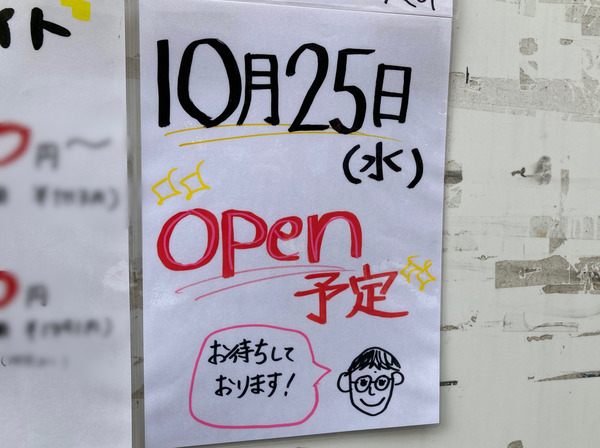 イト
円〜
円
10月25日
(水)
open
予定
お待ちして
おります!